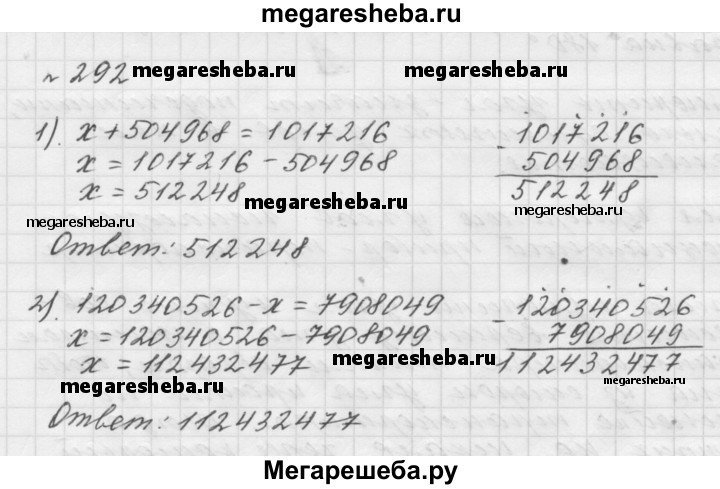 megaresheba.ru
№ 292 megaresheba.ru megaresheba.ru
1). x + 504968 = 1017216
x = 1017216 - 504968
x = 512248
- 1017216
504968
512248
megaresheba.ru
megaresheba.ru megaresheba.ru
Ответ: 512248
2). 120340526 - x = 7908049
x = 120340526 - 7908049
x = 112432477
- 120340526
7908049
112432477
megaresheba.ru
megaresheba.ru megaresheba.ru
Ответ: 112432477
Мегарешеба.ру